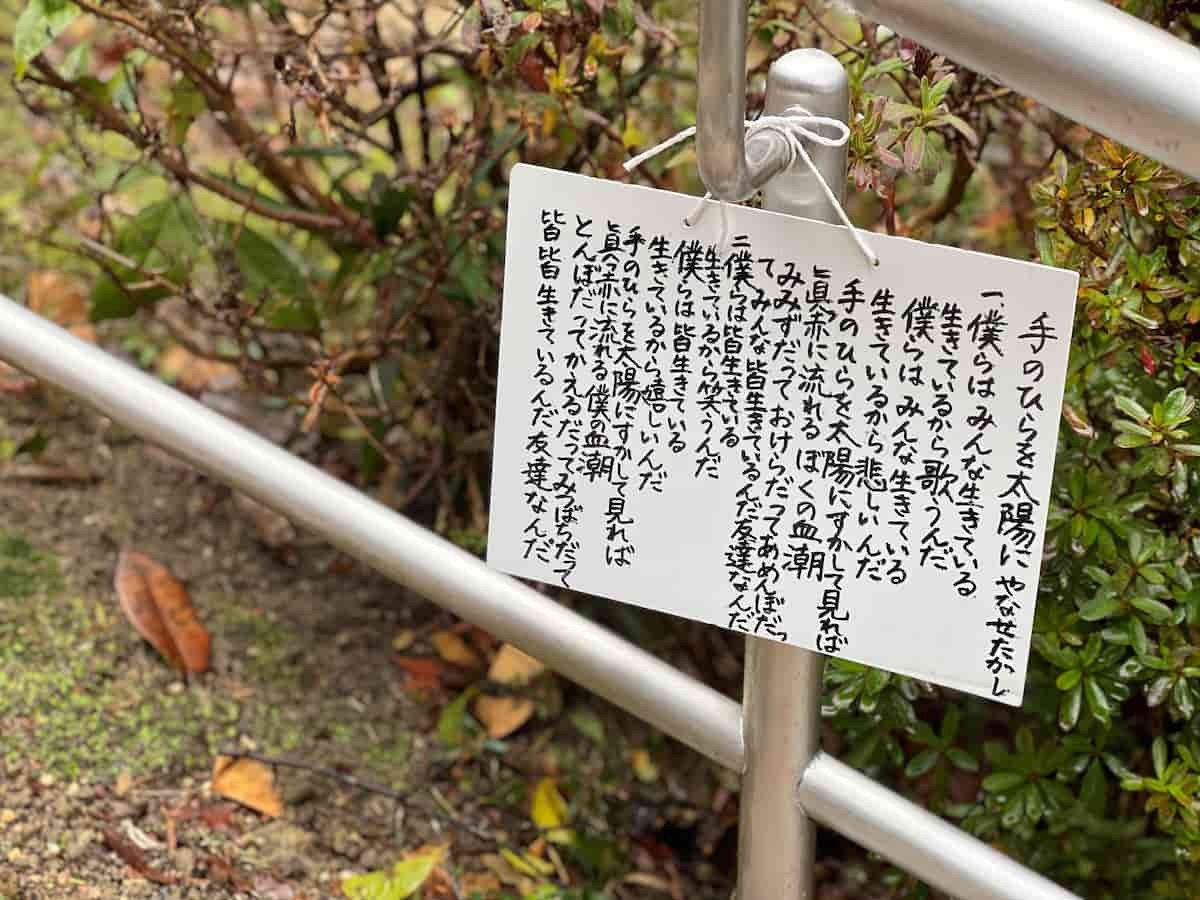 手のひらを太陽に やなせたかし
一、僕らはみんな生きている
生きているから歌うんだ
僕らはみんな生きている
生きているから悲しいんだ
手のひらを太陽にすかして見れば
眞赤に流れるぼくの血潮
みみずだっておけらだってあめんぼだっ
てみんな皆生きているんだ友達なんだ
二僕らは皆生きている
生きているから笑うんだ
僕らは皆生きている
生きているから嬉しいんだ
手のひらを太陽にすかして見れば
眞赤に流れる僕の血潮
とんぼだってかえるだってみつばちだって
皆皆生きているんだ友達なんだ